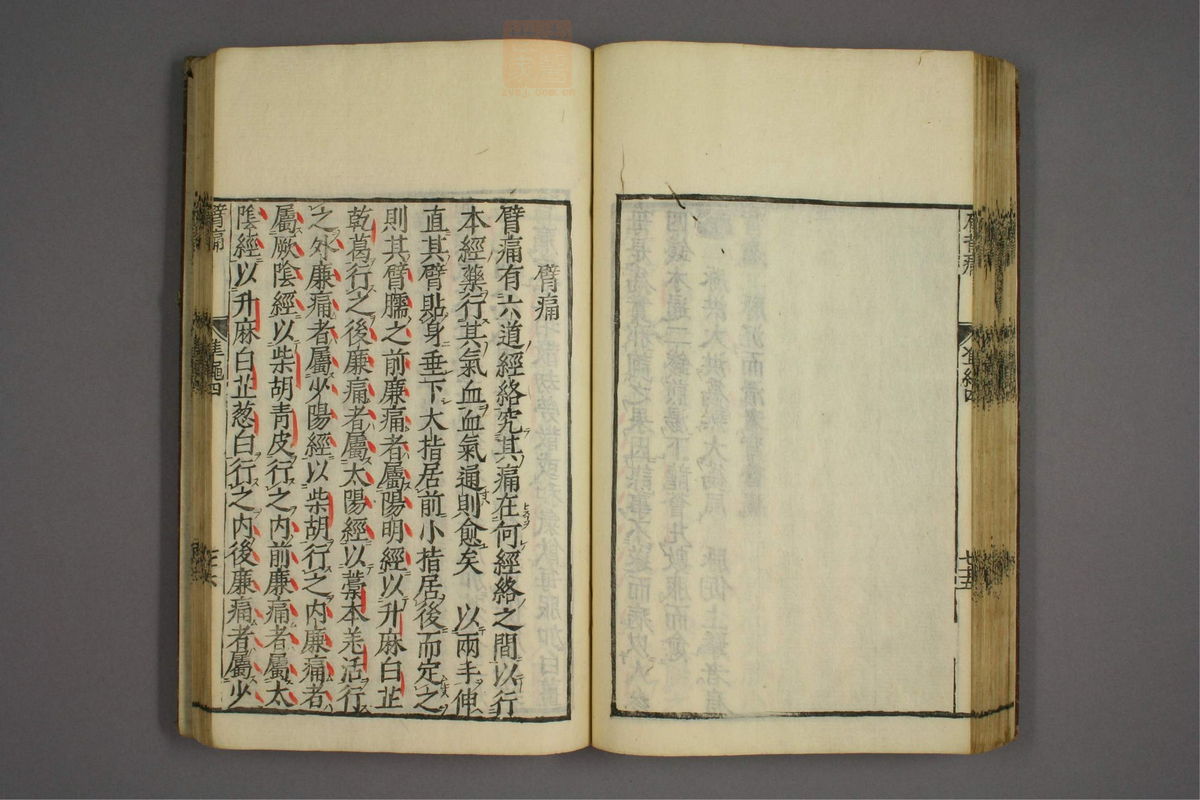 肩背痛
準繩四
七十五
臂痛
臂痛有六道經絡究其痛在何經絡之間以行
本經藥行其氣血血氣通則愈矣　以兩手伸
直其臂貼身垂下大指居前小指居後而定之
則其臂臑之前廉痛者屬陽明經以升麻白芷
乾葛行之後廉痛者屬太陽經以藁本羌活行
之外廉痛者屬少陽經以柴胡行之内廉痛者
屬厥陰經以柴胡青皮行之内前廉痛者屬太
陰經以升麻白芷葱白行之内後廉痛者屬少
臂痛
準繩四
zysj.com.cn